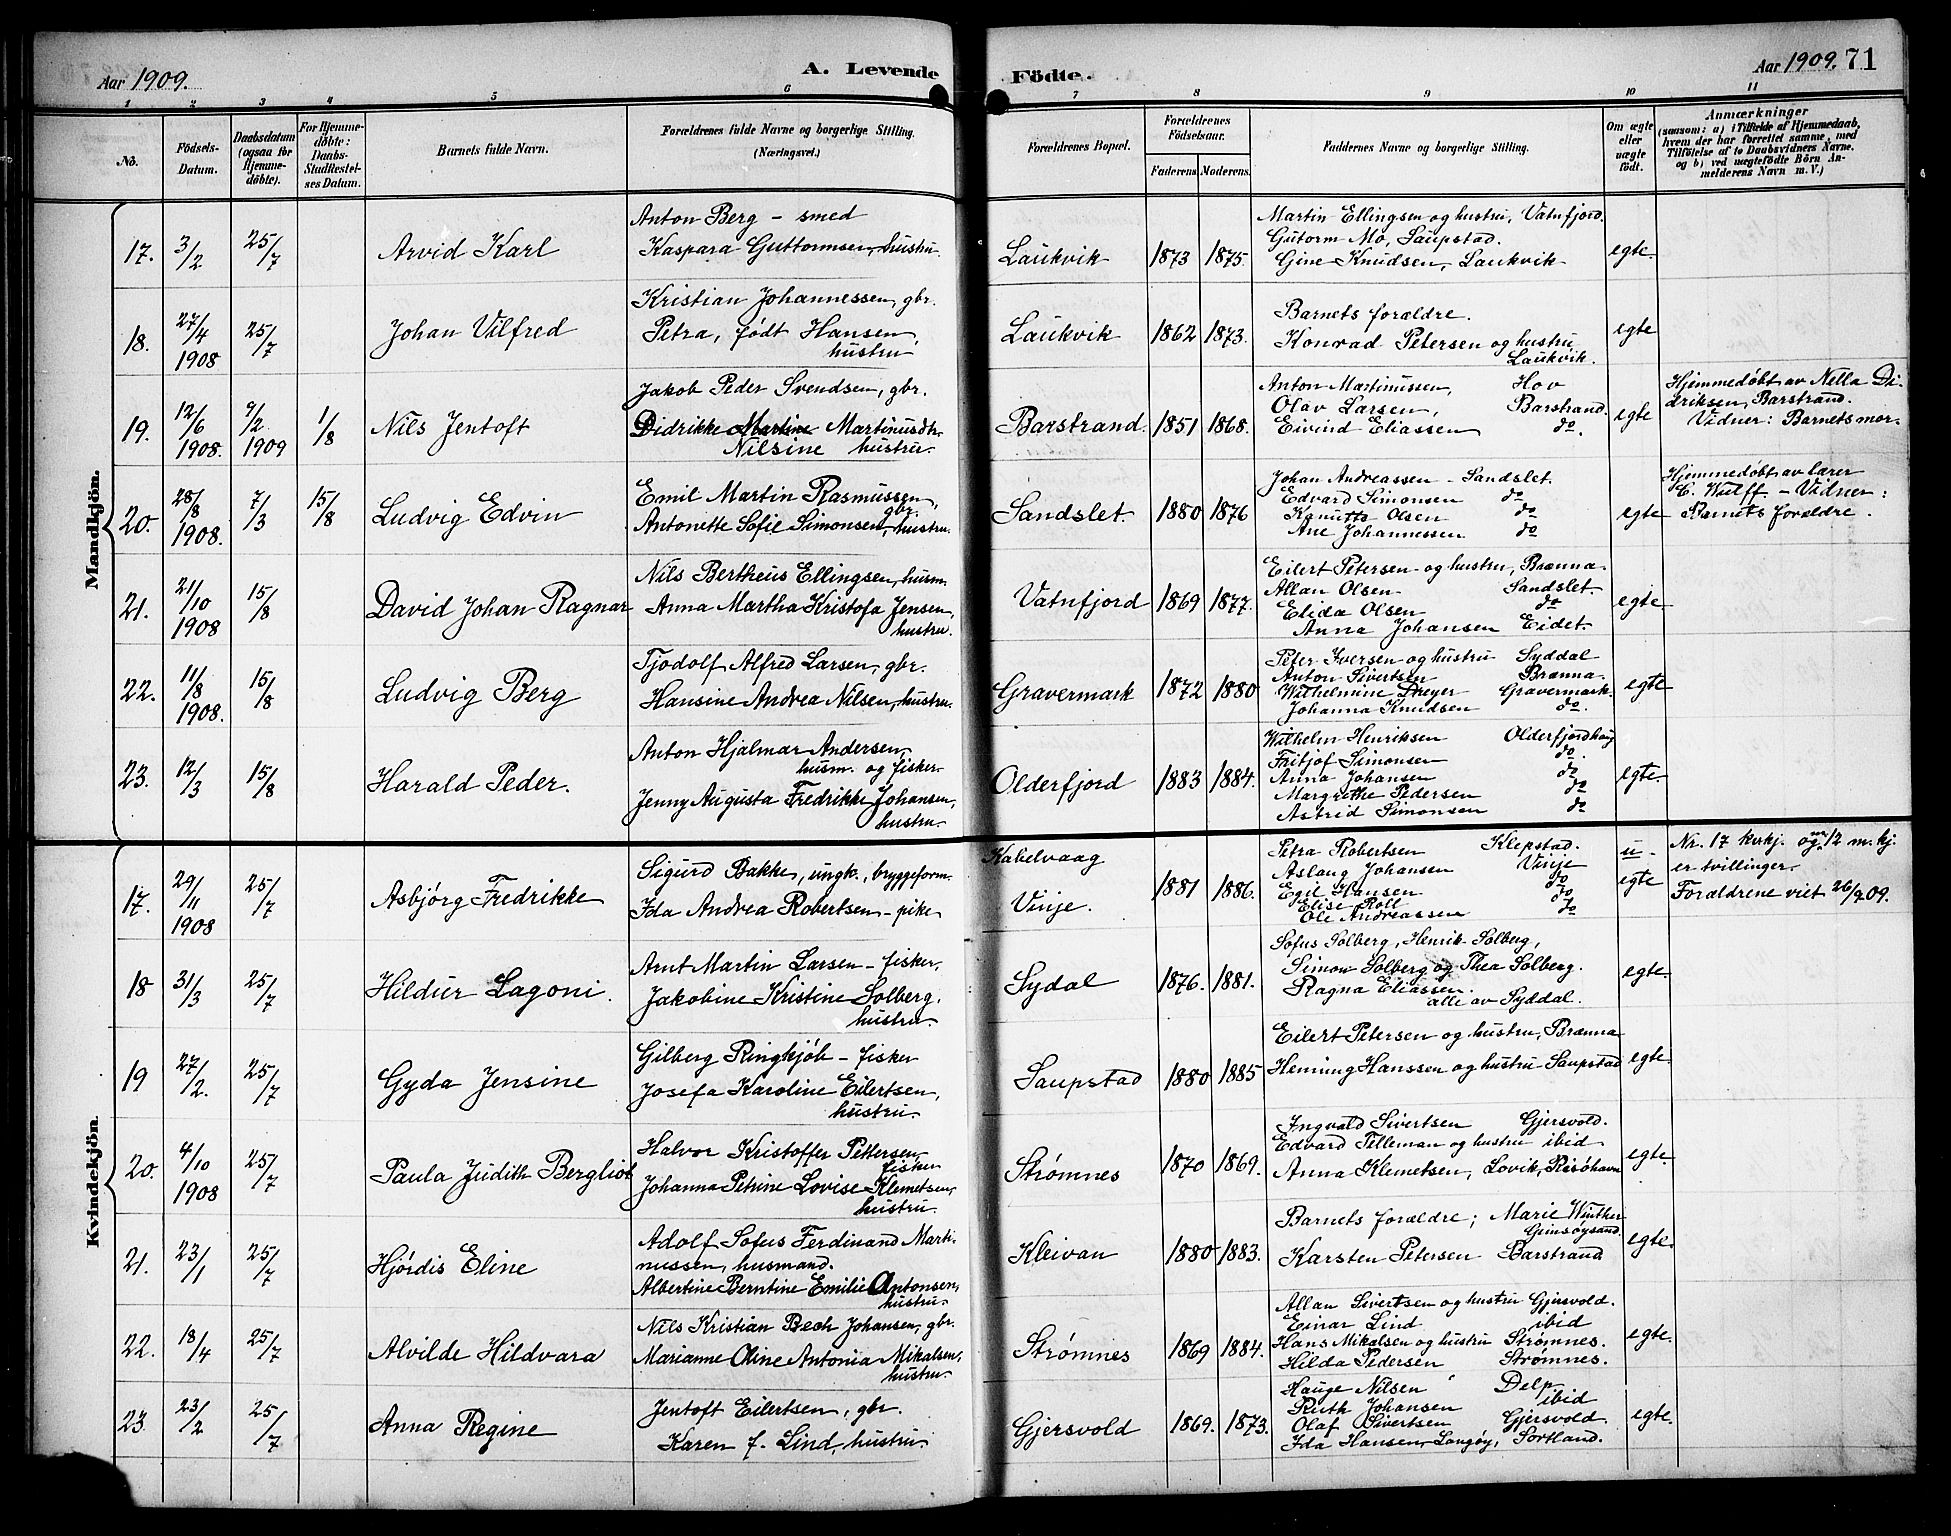 Aar 1909.
A. Levende Födte.
Aar 1909. 71
1 2 3 4 5 6 7 8 9 10 11
No.
Födsels-Datum.
Daabsdatum (ogsaa for Hjemme-döbte).
For Hjemme-döbte: Daabs-Stadfæstel-ses Datum.
Barnets fulde Navn.
Forældrenes fulde Navne og borgerlige Stilling.
(Næringsvei.)
Forældrenes Bopæl.
Forældrenes Födselsaar.
Faderens. Moderens.
Faddernes Navne og borgerlige Stilling.
Om ægte eller uægte födt.
Anmærkninger
(saasom: a) i Tilfælde af Hjemmedaab, hvem der har forrettet samme, med Tilföielse af to Daabsvidners Navne, og b) ved uægtefödte Börn An-melderens Navn m. V.)
Mandkjön.
17. 3/2 25/7 Arvid Karl
Anton Berg – smed
Kaspara Guttormsen, hustru.
Laukvik 1873 1875.
Martin Ellingsen og hustru, Vatnfjord.
Gutorm Mo, Saupstad.
Gine Knudsen, Laukvik
egte.
18. 27/4 1908 25/7 Johan Vilfred
Kristian Johannessen, gbr.
Petra, født Hansen,
hustru
Laukvik 1862 1873.
Barnets forældre.
Konrad Petersen og hustru,
Laukvik.
egte
19. 12/6 1908. 9/2 1909 1/8 Nils Jentoft
Jakob Peder Svendsen, gbr.
Didrikke Martine Martinusdtr.
Nilsine hustru.
Barstrand. 1851 1868.
Anton Martinussen, Hov
Olav Larsen, Barstrand.
Eivind Eliassen do.
egte
Hjemmedøbt av Nella Di-
driksen, Barstrand.
Vidner: Barnets mor.
20. 28/8 1908. 7/3 15/8 Ludvig Edvin
Emil Martin Rasmussen,
gbr.
Antonette Sofie Simonsen, hustru.
Sandslet. 1880 1876
Johan Andreassen – Sandslet.
Edvard Simonsen do
Kanutte Olsen do
Ane Johannessen do
egte
Hjemmedøbt av lærer
C. Wulff – Vidner:
Barnets forældre.
21. 21/10 1908 15/8 David Johan Ragnar
Nils Bertheus Ellingsen, husm.
Anna Martha Kristofa Jensen,
hustru.
Vatnfjord 1869 1877.
Eilert Petersen og hustru, Brænna
Allan Olsen Sandslet.
Elida Olsen do
Anna Johansen Eidet.
egte
22. 11/8 1908. 15/8 Ludvig Berg
Tjodolf Alfred Larsen, gbr.
Hansine Andrea Nilsen, hustru.
Gravermark 1872 1880
Peter Iversen og hustru Syddal
Anton Sivertsen Brænna
Wilhelmine Dreyer Gravermark.
Johanna Knudsen do.
egte
23. 12/3 15/8 Harald Peder.
Anton Hjalmar Andersen,
husm. og fisker.
Jenny Augusta Fredrikke Johansen,
hustru.
Olderfjord 1883 1884.
Wilhelm Henriksen Olderfjordhaug
Fritjof Simonsen do.
Anna Johansen do
Margrethe Pedersen do
Astrid Simonsen do
egte.
Kvindekjön.
17. 29/11 1908 25/7 Asbjørg Fredrikke
Sigurd Bakke, ungk., bryggeform.
Ida Andrea Robertsen – pike
Kabelvaag
Vinje. 1881 1886.
Petra Robertsen Klepstad.
Aslaug Johansen Vinje
Egil Hansen do
Elise Roll do
Ole Andreassen do
u-
egte
Nr. 17 kvkj. og nr 12 m.kj.
er tvillinger.
Forældrene viet 26/9 09.
18 31/3 25/7 Hildur Lagoni.
Arnt Martin Larsen – fisker,
Jakobine Kristine Solberg,
hustru.
Sydal 1876. 1881.
Sofus Solberg, Henrik Solberg,
Simon Solberg og Thea Solberg.
Ragna Eliassen.
alle av Syddal.
egte.
19 27/2. 25/7 Gyda Jensine
Gilberg Ringkjøb – fisker
Josefa Karoline Eilertsen,
hustru.
Saupstad 1880 1885
Eilert Petersen og hustru, Brænna
Henning Hanssen og hustru Saupstad
egte.
20. 4/10 1908 25/7 Paula Judith Bergliot
Halvor Kristoffer Pettersen,
fisker
Johanna Petrine Lovise Klemetsen,
hustru.
Strømnes 1870 1869.
Ingvald Sivertsen Gjersvold.
Edvard Tilleman og hustru ibid
Anna Klemetsen, Lovik, Risøhavn
egte.
21. 23/1 25/7 Hjørdis Eline
Adolf Sofus Ferdinand Marti-
nussen, husmand.
Albertine Berntine Emilie Antonsen,
hustru.
Kleivan 1880 1883.
Barnets forældre; Marie Winther
Gimsøysand.
Karsten Petersen Barstrand
egte.
22. 18/4 25/7 Alvilde Hildvara
Nils Kristian Bech Johansen, gbr.
Marianne Oline Antonia Mikalsen,
hustru.
Strømnes 1869 1884.
Allan Sivertsen og hustru Gjersvold.
Einar Lind ibid
Hans Mikalsen og hustru Strømnes.
Hilda Pedersen Strømnes.
egte.
23 23/2 25/7 Anna Regine
Jentoft Eilertsen, gbr.
Karen f. Lind, hustru.
Gjersvold 1869. 1873.
Hauge Nilsen Delp
Ruth Johansen ibid
Olaf Sivertsen Gjersvold
Ida Hansen, Langøy, Sortland.
egte.